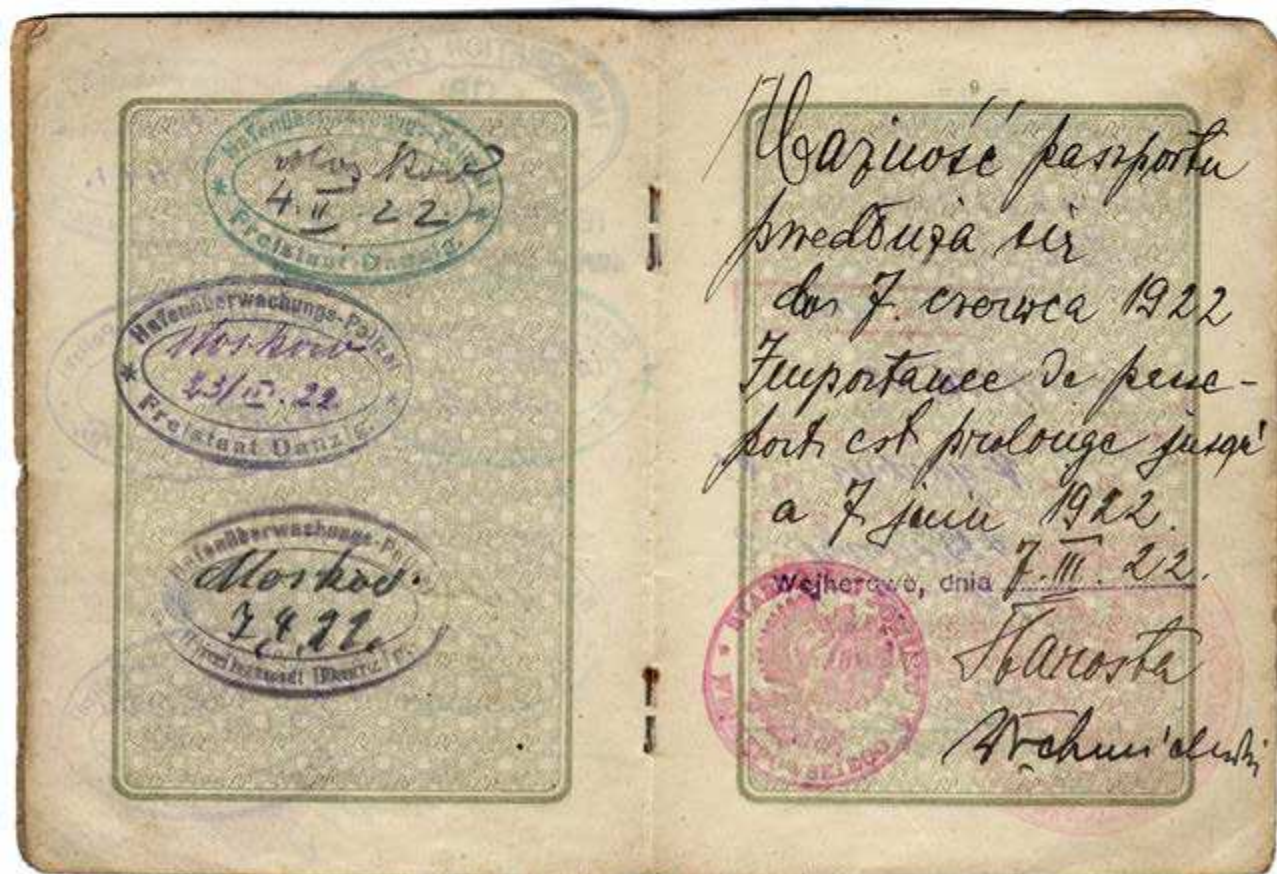 Hafenüberwachungs-Polizei
4. II. 22
Freistaat Danzig.
Hafenüberwachungs-Polizei
Moskow
23/II. 22.
Freistaat Danzig.
Hafenüberwachungs-Pol
Moskow.
7.4.22.
9
Ważność paszportu
przedłuża się
do 7. czerwca 1922
Importance de passe-
port est prolonge jusqu'
a 7 juin 1922.
Wejherowo, dnia 7. III. 22.
Starosta